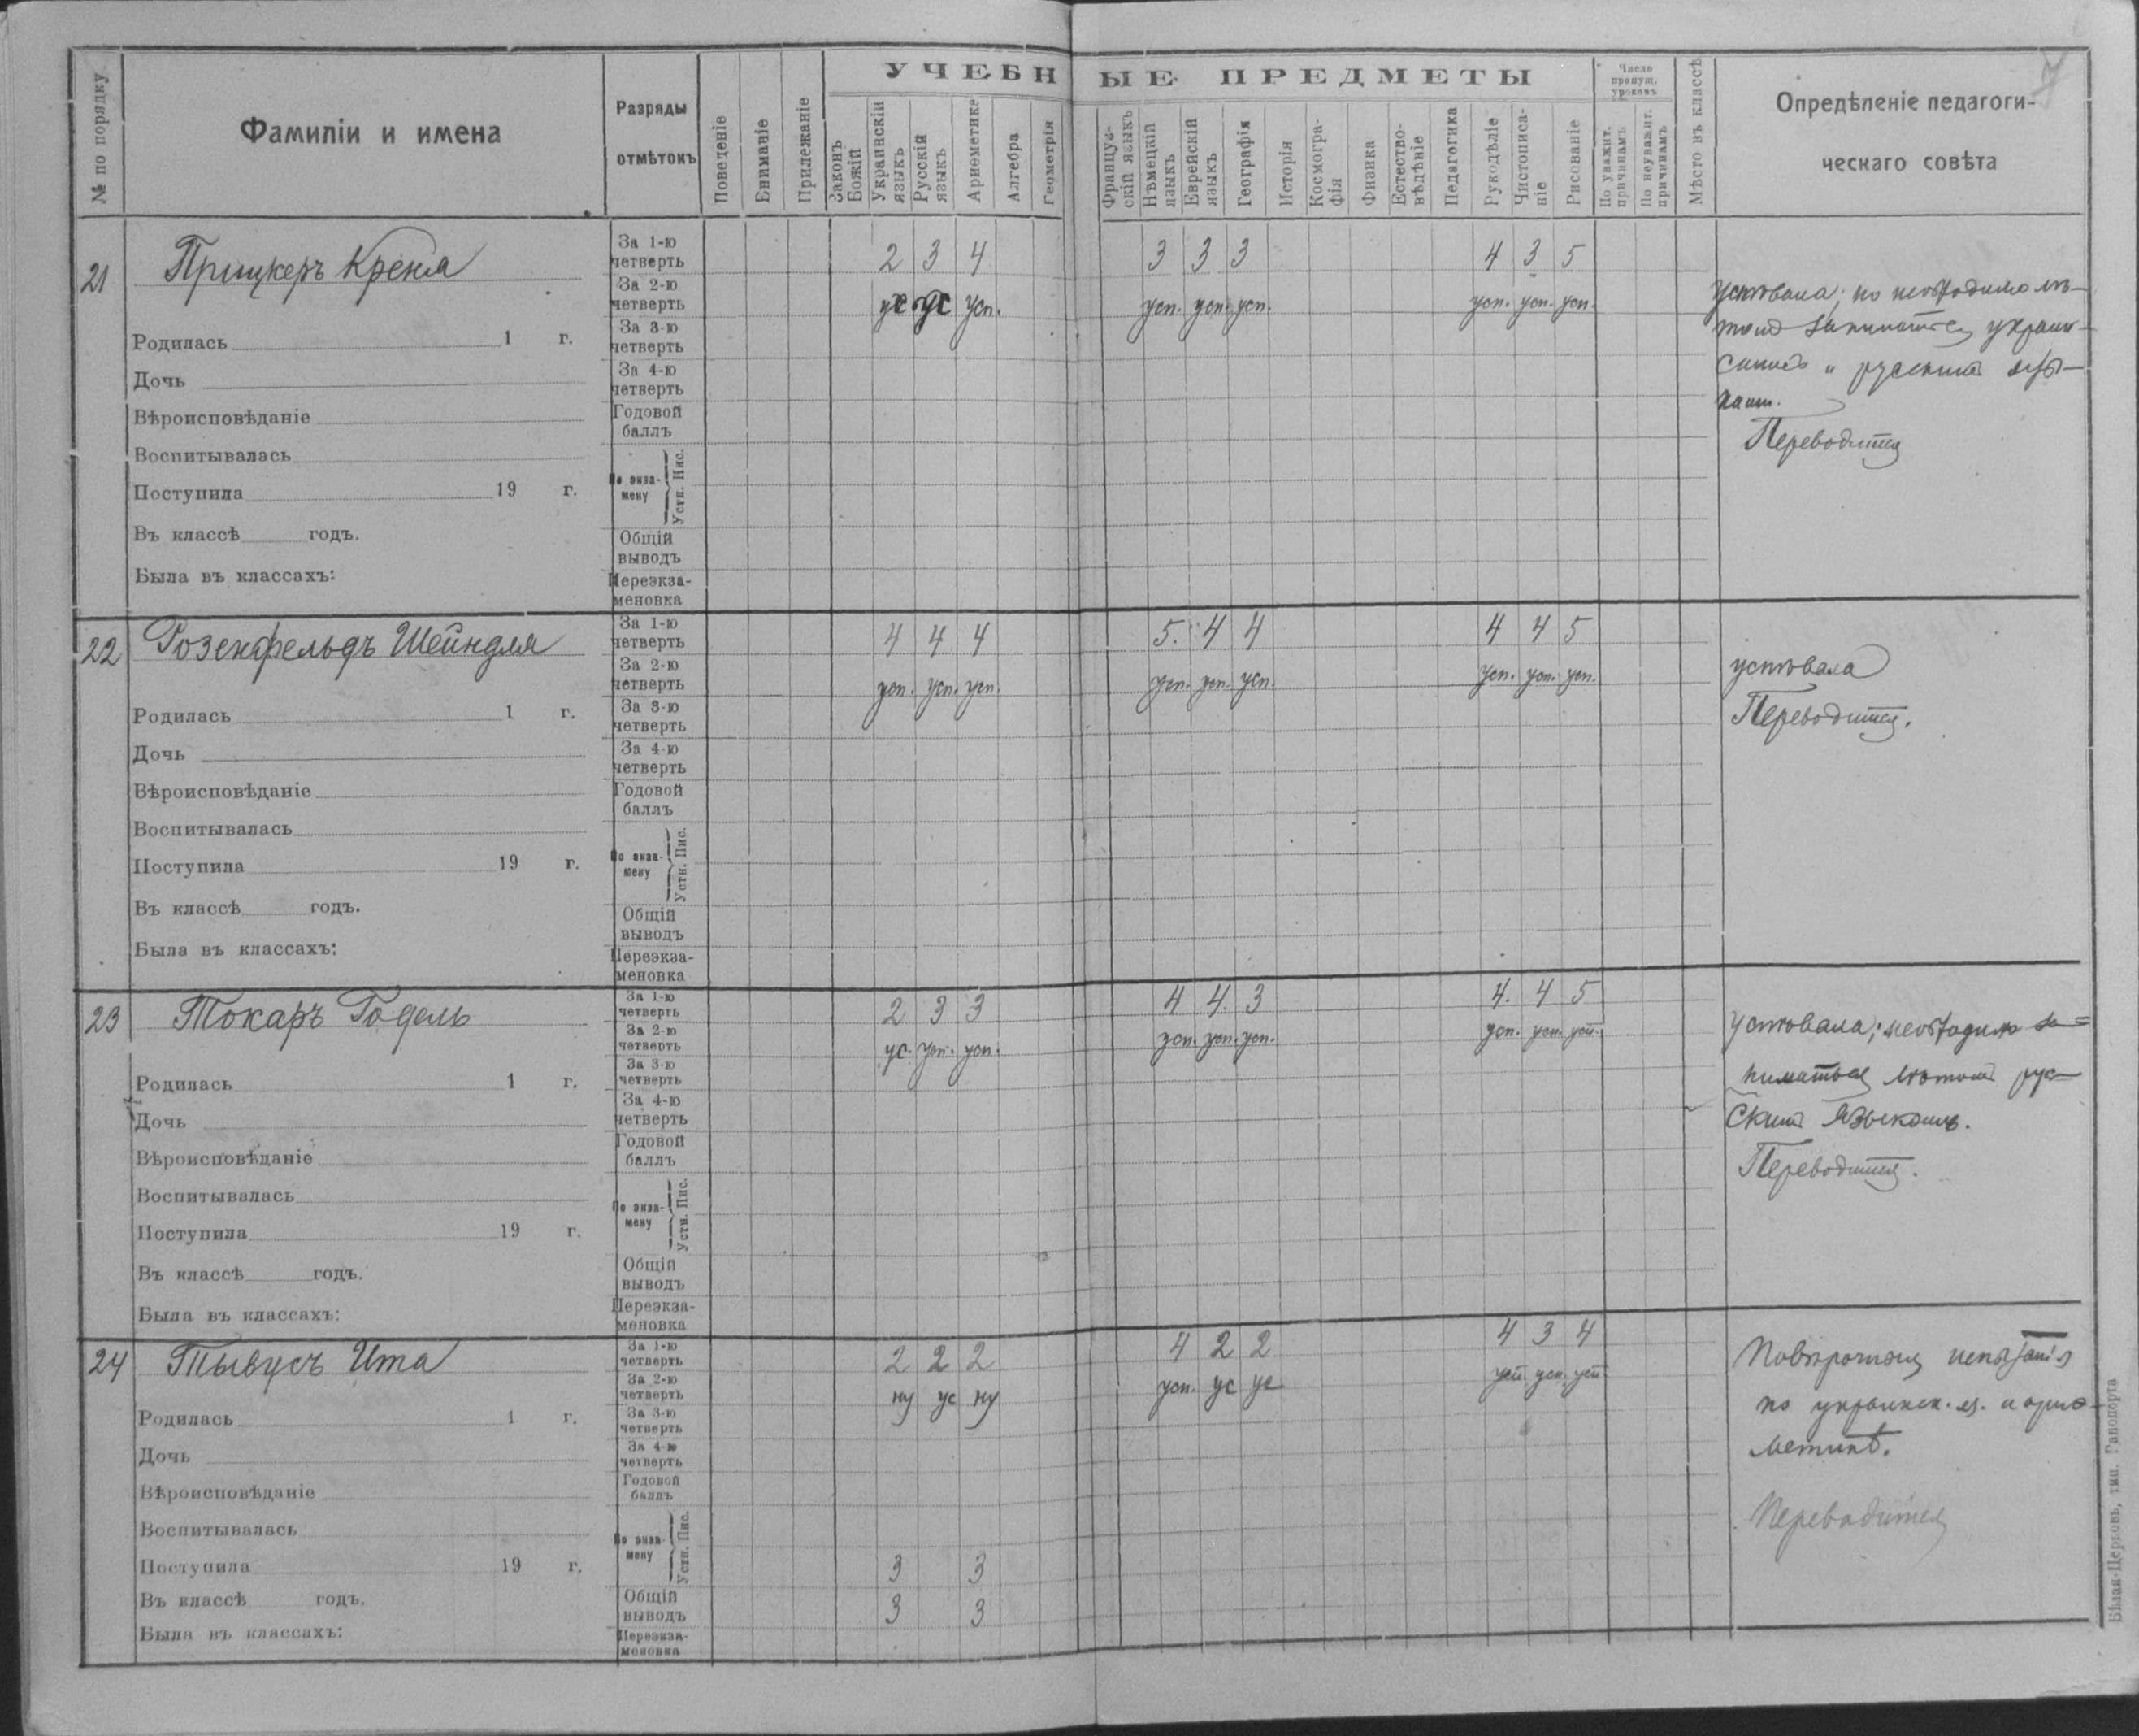 УЧЕБНЫЕ ПРЕДМЕТЫ
7
№ по порядку
Фамиліи и имена
Разряды отмѣтокъ
Поведеніе
Вниманіе
Прилежаніе
Законъ Божій
Украинскій языкъ
Русскій языкъ
Ариѳметика
Алгебра
Геометрія
Француз-скій языкъ
Нѣмецкій языкъ
Еврейскій языкъ
Географія
Исторія
Космогра-фія
Физика
Естество-вѣдѣніе
Педагогика
Рукодѣліе
Чистописа-ніе
Рисованіе
Число пропущ. уроковъ
По уважит. причинамъ
По неуважит. причинамъ
Мѣсто въ классѣ
Опредѣленіе педагоги-
ческаго совѣта
21 Прицкеръ Крейня
За 1-ю четверть 2 3 4 3 3 3 4 3 5
За 2-ю четверть ус ус усп. усп. усп. усп. усп. усп. усп.
За 3-ю четверть
За 4-ю четверть
Годовой баллъ
По экза-мену Устн. Пис.
Общій выводъ
Переэкза-меновка
Родилась 1 г.
Дочь
Вѣроисповѣданіе
Воспитывалась
Поступила 19 г.
Въ классѣ годъ.
Была въ классахъ:
успѣвала; но необходимо лѣ-
томъ заниматься украин-
скимъ и русскимъ язы-
комъ.
Переводится
22 Розенфельдъ Шейндля
За 1-ю четверть 4 4 4 5. 4 4 4 4 5
За 2-ю четверть усп. усп. усп. усп. усп. усп. усп. усп. усп.
За 3-ю четверть
За 4-ю четверть
Годовой баллъ
По экза-мену Устн. Пис.
Общій выводъ
Переэкза-меновка
Родилась 1 г.
Дочь
Вѣроисповѣданіе
Воспитывалась
Поступила 19 г.
Въ классѣ годъ.
Была въ классахъ:
успѣвала
Переводится.
23 Токаръ Годель
За 1-ю четверть 2 3 3 4 4. 3 4. 4 5
За 2-ю четверть ус. усп. усп. усп. усп. усп. усп. усп. усп.
За 3-ю четверть
За 4-ю четверть
Годовой баллъ
По экза-мену Устн. Пис.
Общій выводъ
Переэкза-меновка
Родилась 1 г.
Дочь
Вѣроисповѣданіе
Воспитывалась
Поступила 19 г.
Въ классѣ годъ.
Была въ классахъ:
успѣвала; необходимо за=
ниматься лѣтомъ рус-
скимъ языкомъ.
Переводится.
24 Тывусъ Ита
За 1-ю четверть 2 2 2 4 2 2 4 3 4
За 2-ю четверть ну ус ну усп. ус ус усп. усп. усп.
За 3-ю четверть
За 4-ю четверть
Годовой баллъ
По экза-мену Устн. Пис. 3 3
Общій выводъ 3 3
Переэкза-меновка
Родилась 1 г.
Дочь
Вѣроисповѣданіе
Воспитывалась
Поступила 19 г.
Въ классѣ годъ.
Была въ классахъ:
Повѣрочныя испытанія
по украинск. яз. и ариѳ-
метикѣ.
Переводится
Бѣлая-Церковь, тип. Рапопорта